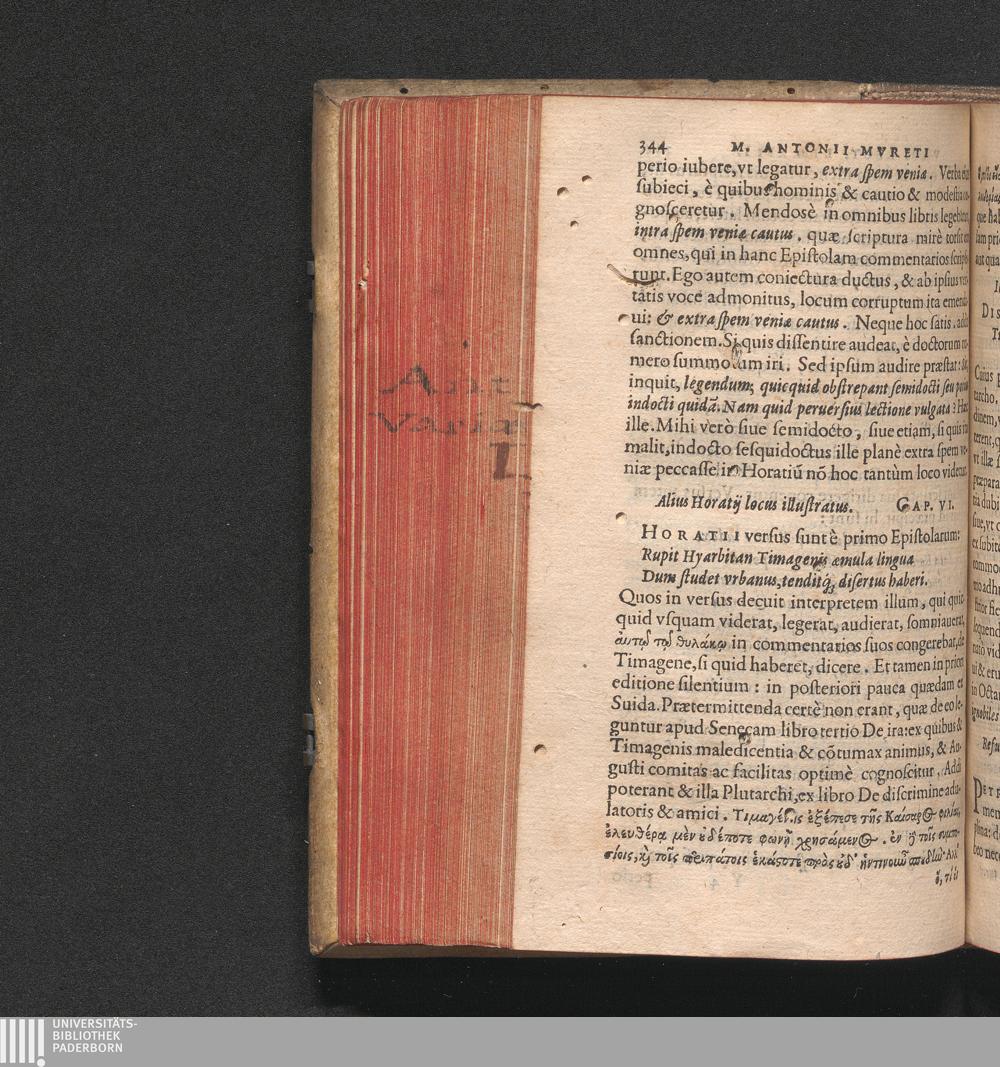 344 M. ANTONII MVRETI
perio iubere, vt legatur, extra ſpem venia. Verba
ſubieci, è quibus hominis & cautio & modeſtia
gnoſceretur. Mendosè in omnibus libris
intra ſpem veniæ cautus. quæ ſcriptura mirè
omnes, qui in hanc Epiſtolam commentarios
runt. Ego autem coniectura ductus, & ab ipſius
tatis voce admonitus, locum corruptum ita
ui: & extra ſpem veniæ cautus. Neque hoc ſatis.
ſanctionem. Si quis diſſentire audeat, è doctorum
mero ſummotum iri. Sed ipſum audire præſtat:
inquit, legendum; quicquid obſtrepant ſemidocti ſeu
indocti quidã. Nam quid peruerſius lectione vulgata?
ille. Mihi verò ſiue ſemidocto, ſiue etiam, ſi quis
malit, indocto ſeſquidoctus ille planè extra ſpem ve-
niæ peccaſſe in Horatiũ nõ hoc tantùm loco
Alius Horatij locus illuſtratus. CAP. VI.
HORATII verſus ſunt è primo Epiſtolarum:
Rupit Hyarbitan Timagenis æmula lingua
Dum ſtudet vrbanus, tenditq́; diſertus haberi.
Quos in verſus decuit interpretem illum, qui quic-
quid vſquam viderat, legerat, audierat, ſomniauerat,
αὐτῷ τῷ θυλάκῳ in commentarios ſuos congerebat, de
Timagene, ſi quid haberet, dicere. Et tamen in priori
editione ſilentium: in poſteriori pauca quædam ex
Suida. Prætermittenda certè non erant, quæ de eo le-
guntur apud Senecam libro tertio De ira: ex quibus &
Timagenis maledicentia & cõtumax animus, & Au-
guſti comitas ac facilitas optimè cognoſcitur. Addi
poterant & illa Plutarchi, ex libro De diſcrimine adu-
latoris & amici. Τιμαγένης ἐξέπεσε τῆς Καίσαρος φιλίας,
ἐλευθέρᾳ μὲν οὐδέποτε φωνῇ χρησάμενος. ἐν δὲ τοῖς συμπο-
σίοις, καὶ τοῖς περιπάτοις ἑκάστοτε πρὸς οὐδ᾽ ἡντινοῦν σπουδὴν. Ἀλλ᾽
ὅ, τι
Ant
Variæ
L
UNIVERSITÄTS-
BIBLIOTHEK
PADERBORN